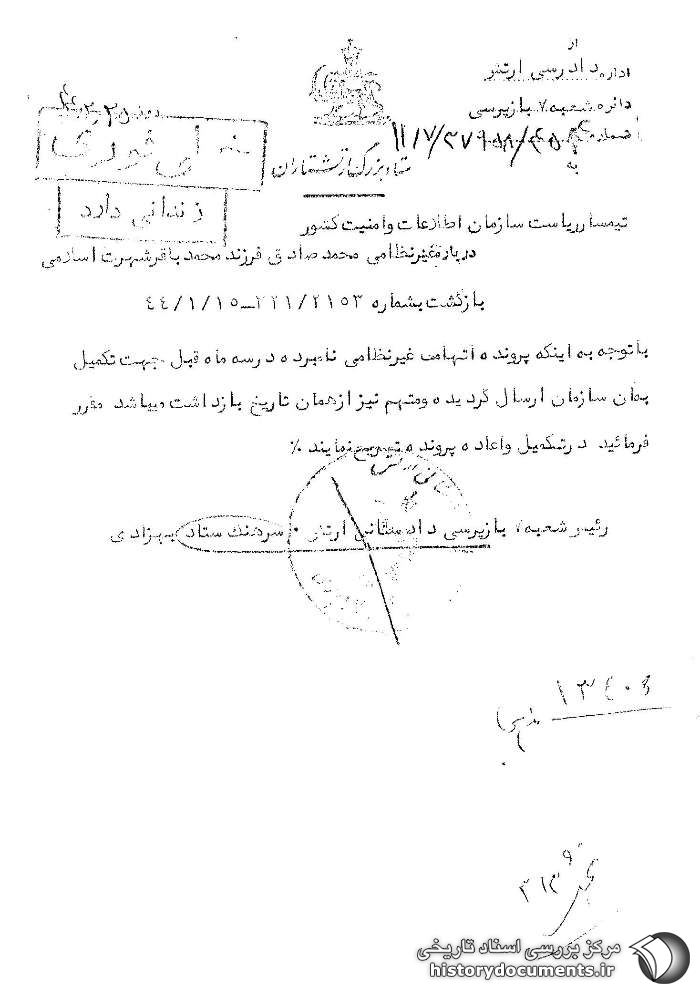 از
اداره دادرسی ارتش
دائره شعبه ۷ بازپرسی
شماره
به
ستاد بزرگ ارتشتاران
خیلی فوری
زندانی دارد
تیمسار ریاست سازمان اطلاعات و امنیت کشور
درباره غیرنظامی محمد صادق فرزند محمد باقر شهرت اسلامی
بازگشت بشماره ۲۲۱/۲۱۵۳-۴۴/۱/۱۵
با توجه به اینکه پرونده اتهامی غیرنظامی نامبرده در سه ماه قبل جهت تکمیل
بآن سازمان ارسال گردیده و متهم نیز از همان تاریخ بازداشت میباشد مقرر
فرمائید در تکمیل و اعاده پرونده تسریع نمایند ٪
رئیس شعبه ۷ بازپرسی دادستانی ارتش . سرهنگ ستاد بهزادی
مرکز بررسی اسناد تاریخی
historydocuments.ir